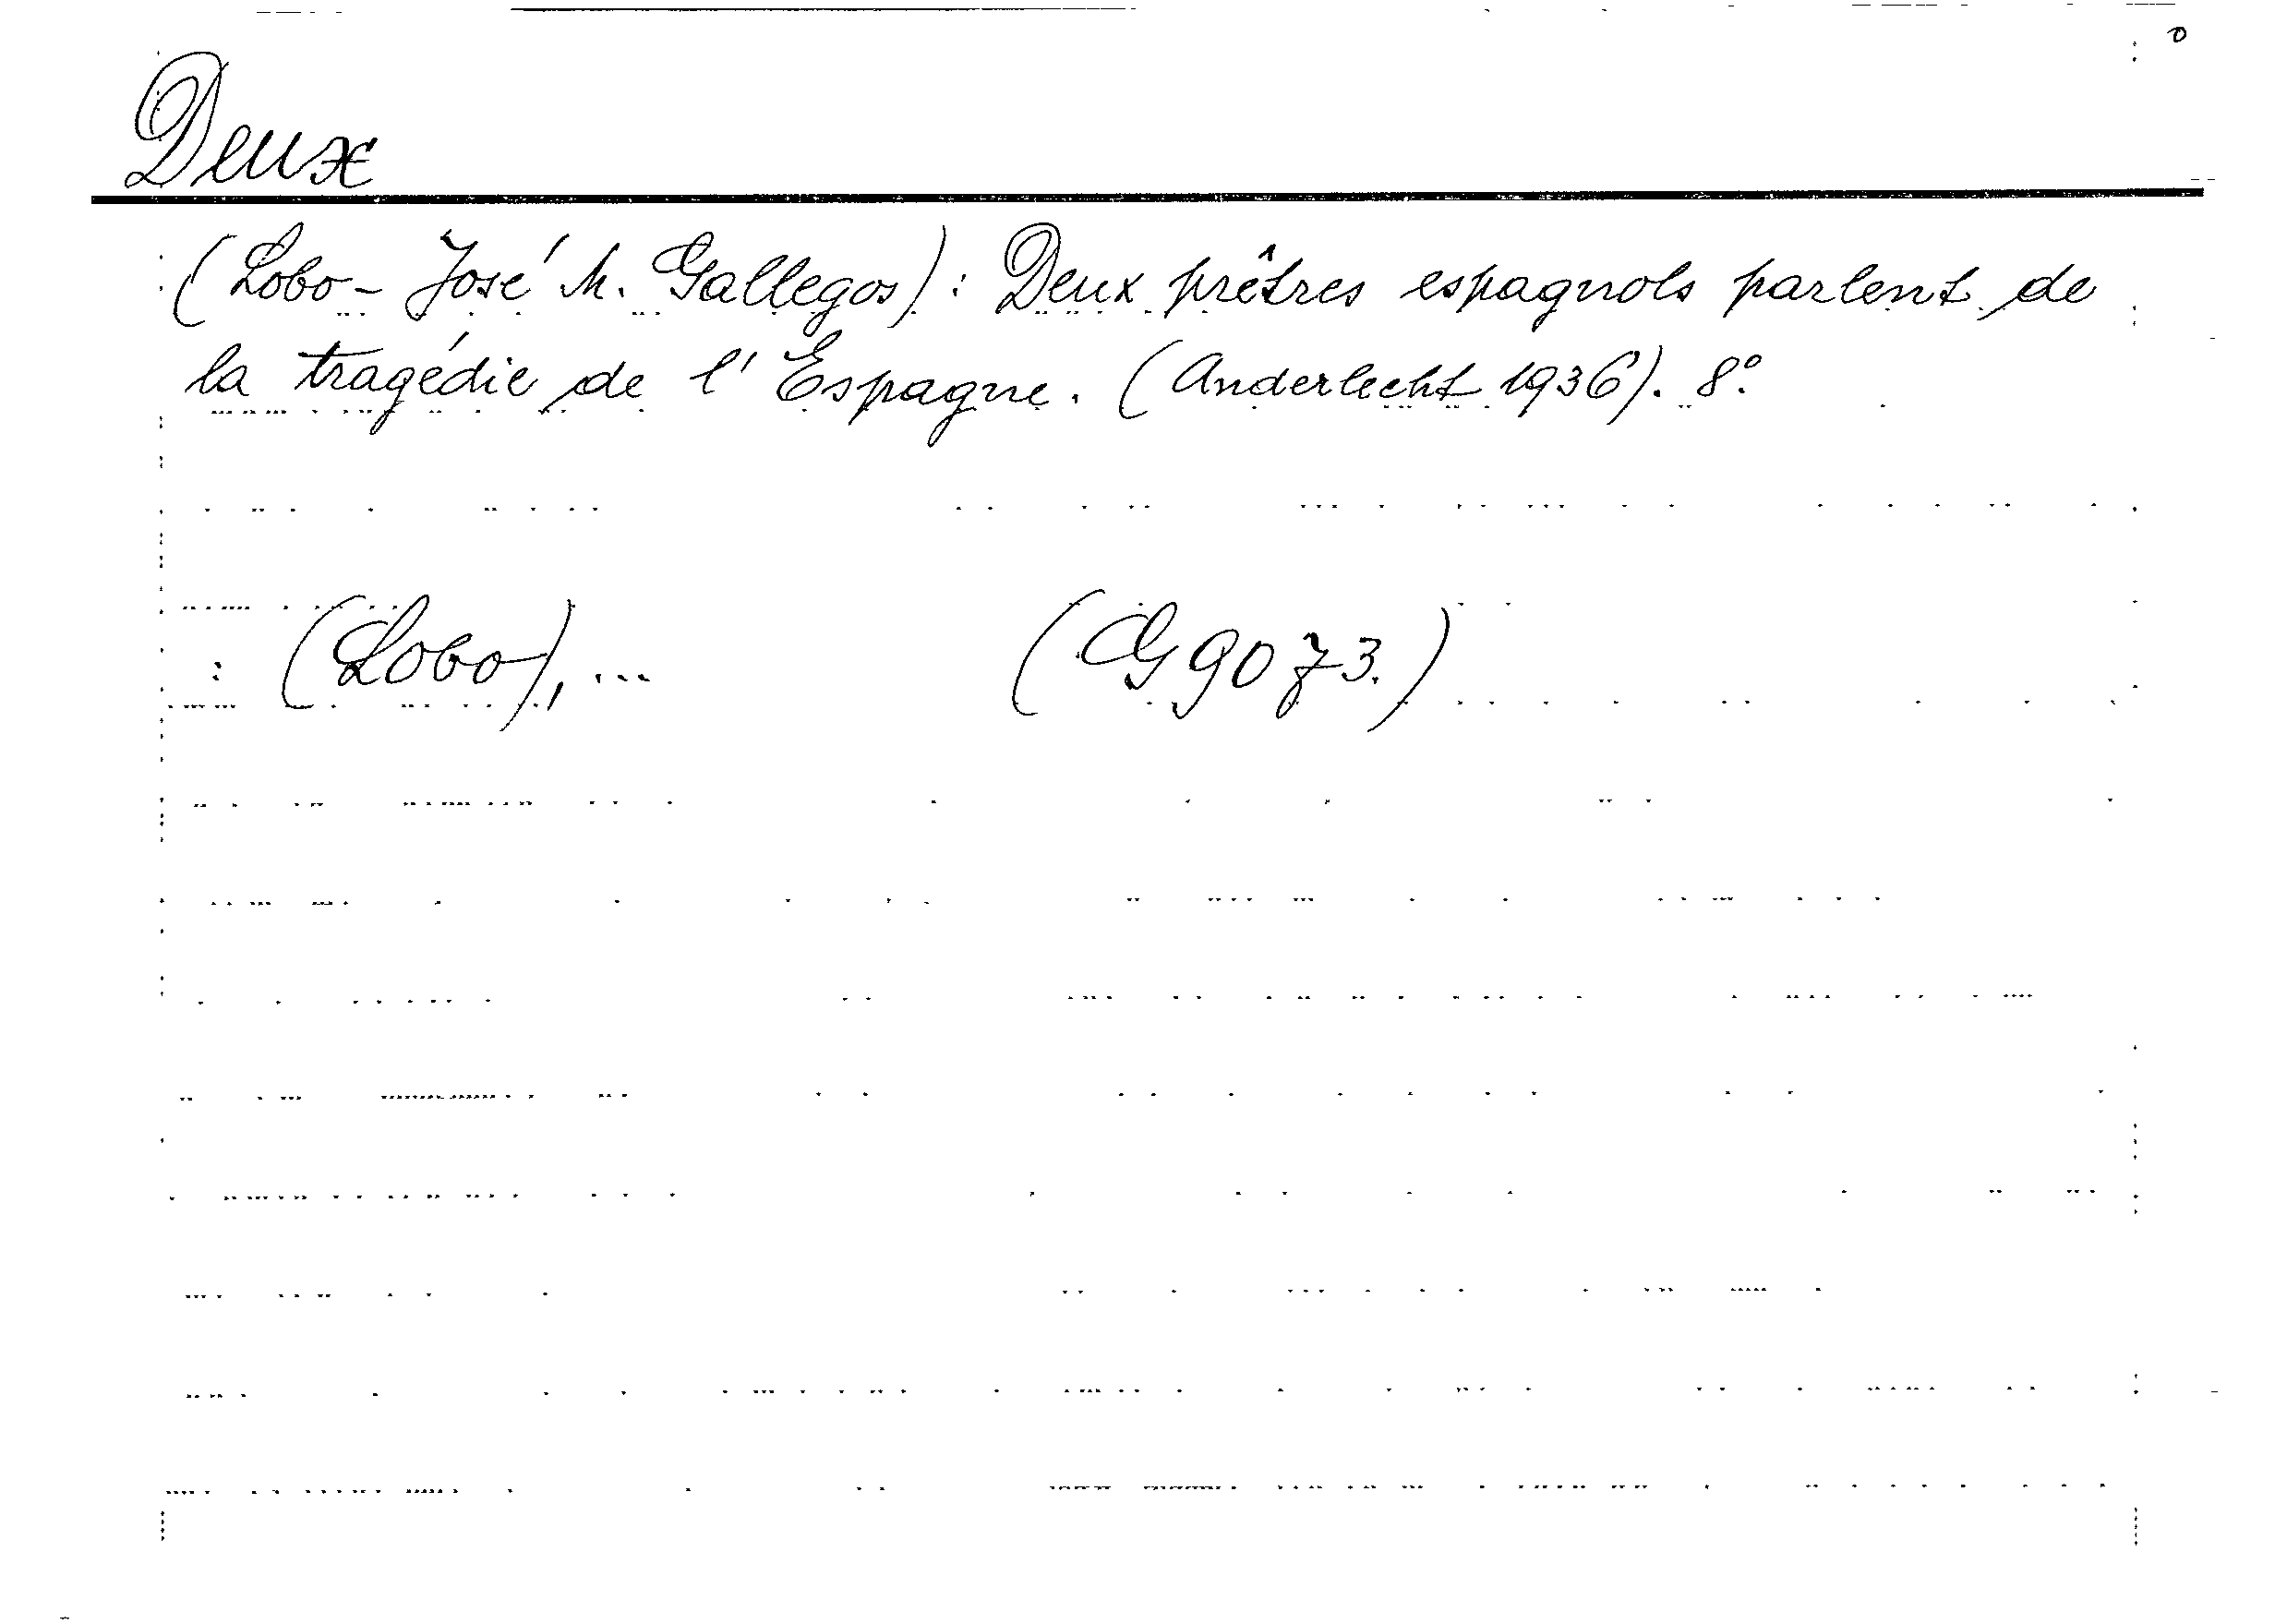 Deux
(Lobo - José M. Gallegos) : Deux prêtres espagnols parlent de
la tragédie de l' Espagne. (Anderlecht 1936). 8°.
: (Lobo), ... (G 9073.)